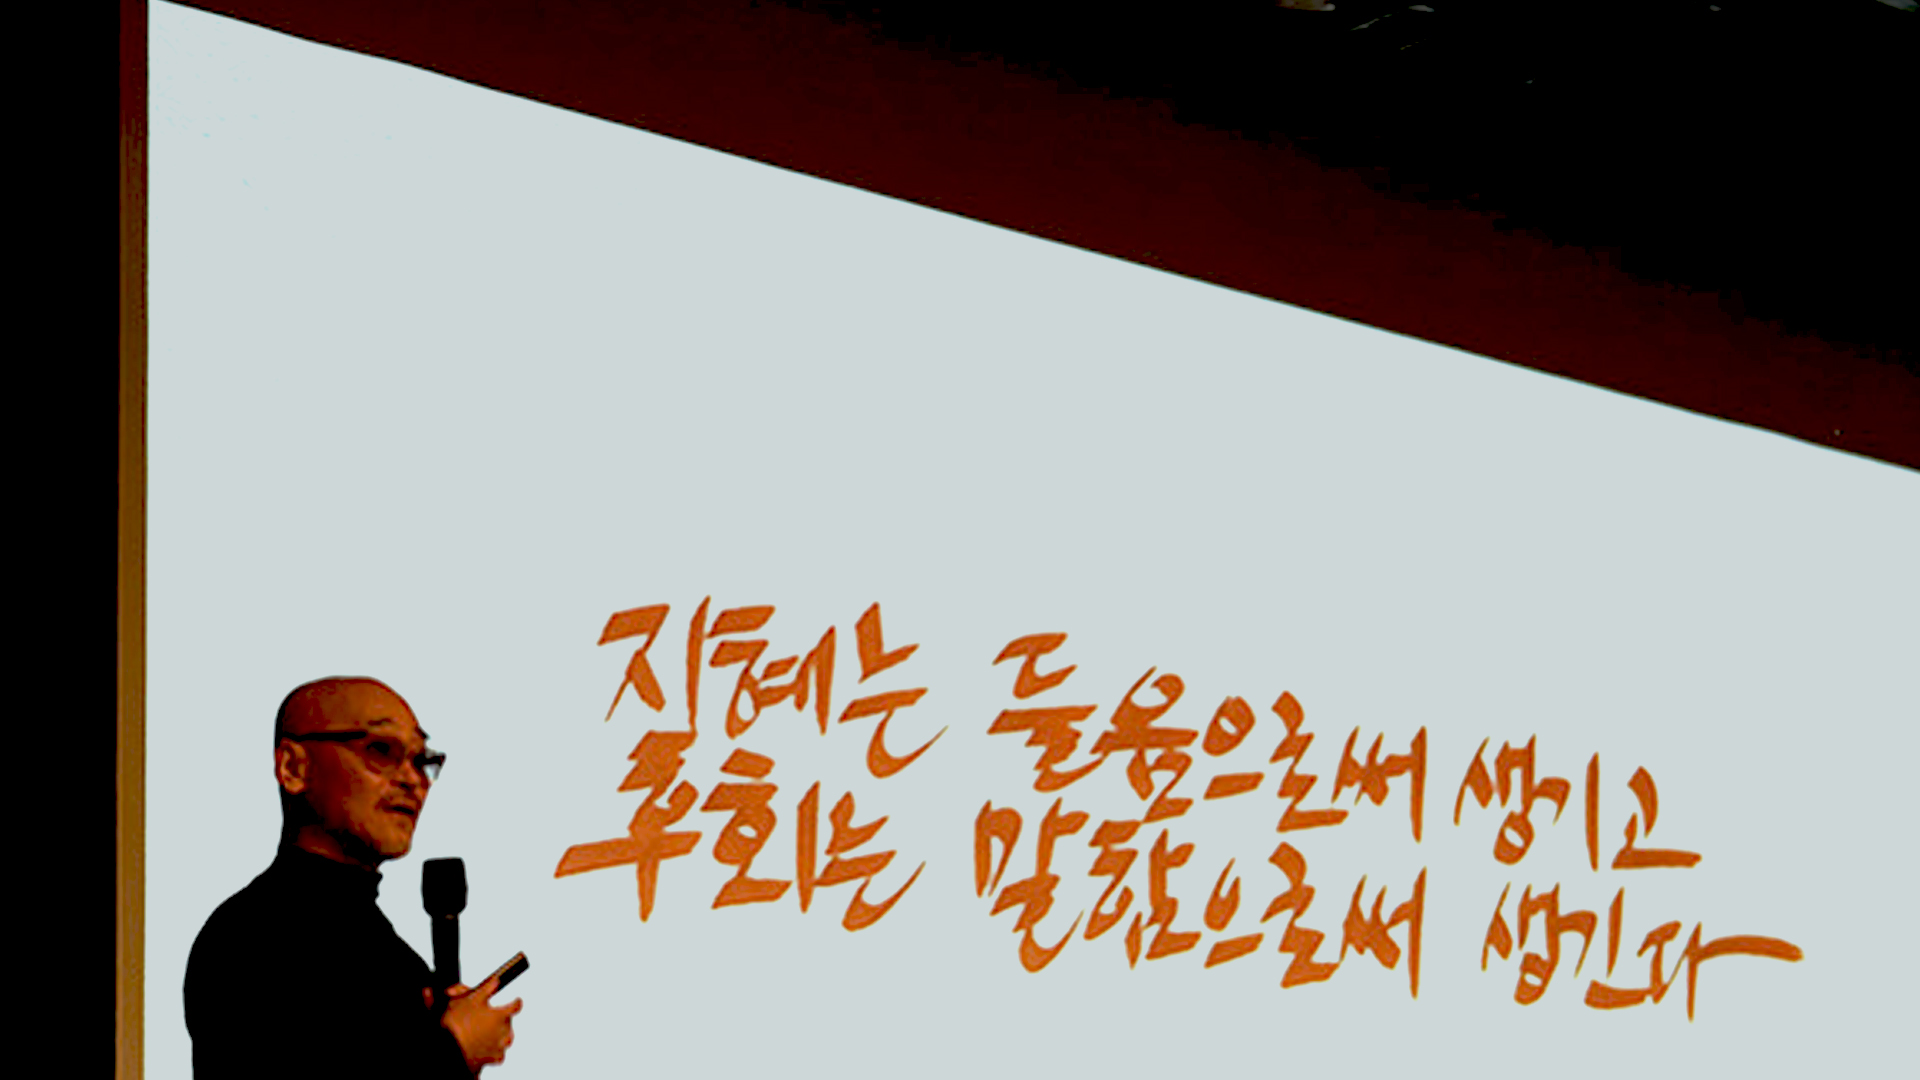 지혜는 들음으로써 생기고
후회는 말함으로써 생긴다